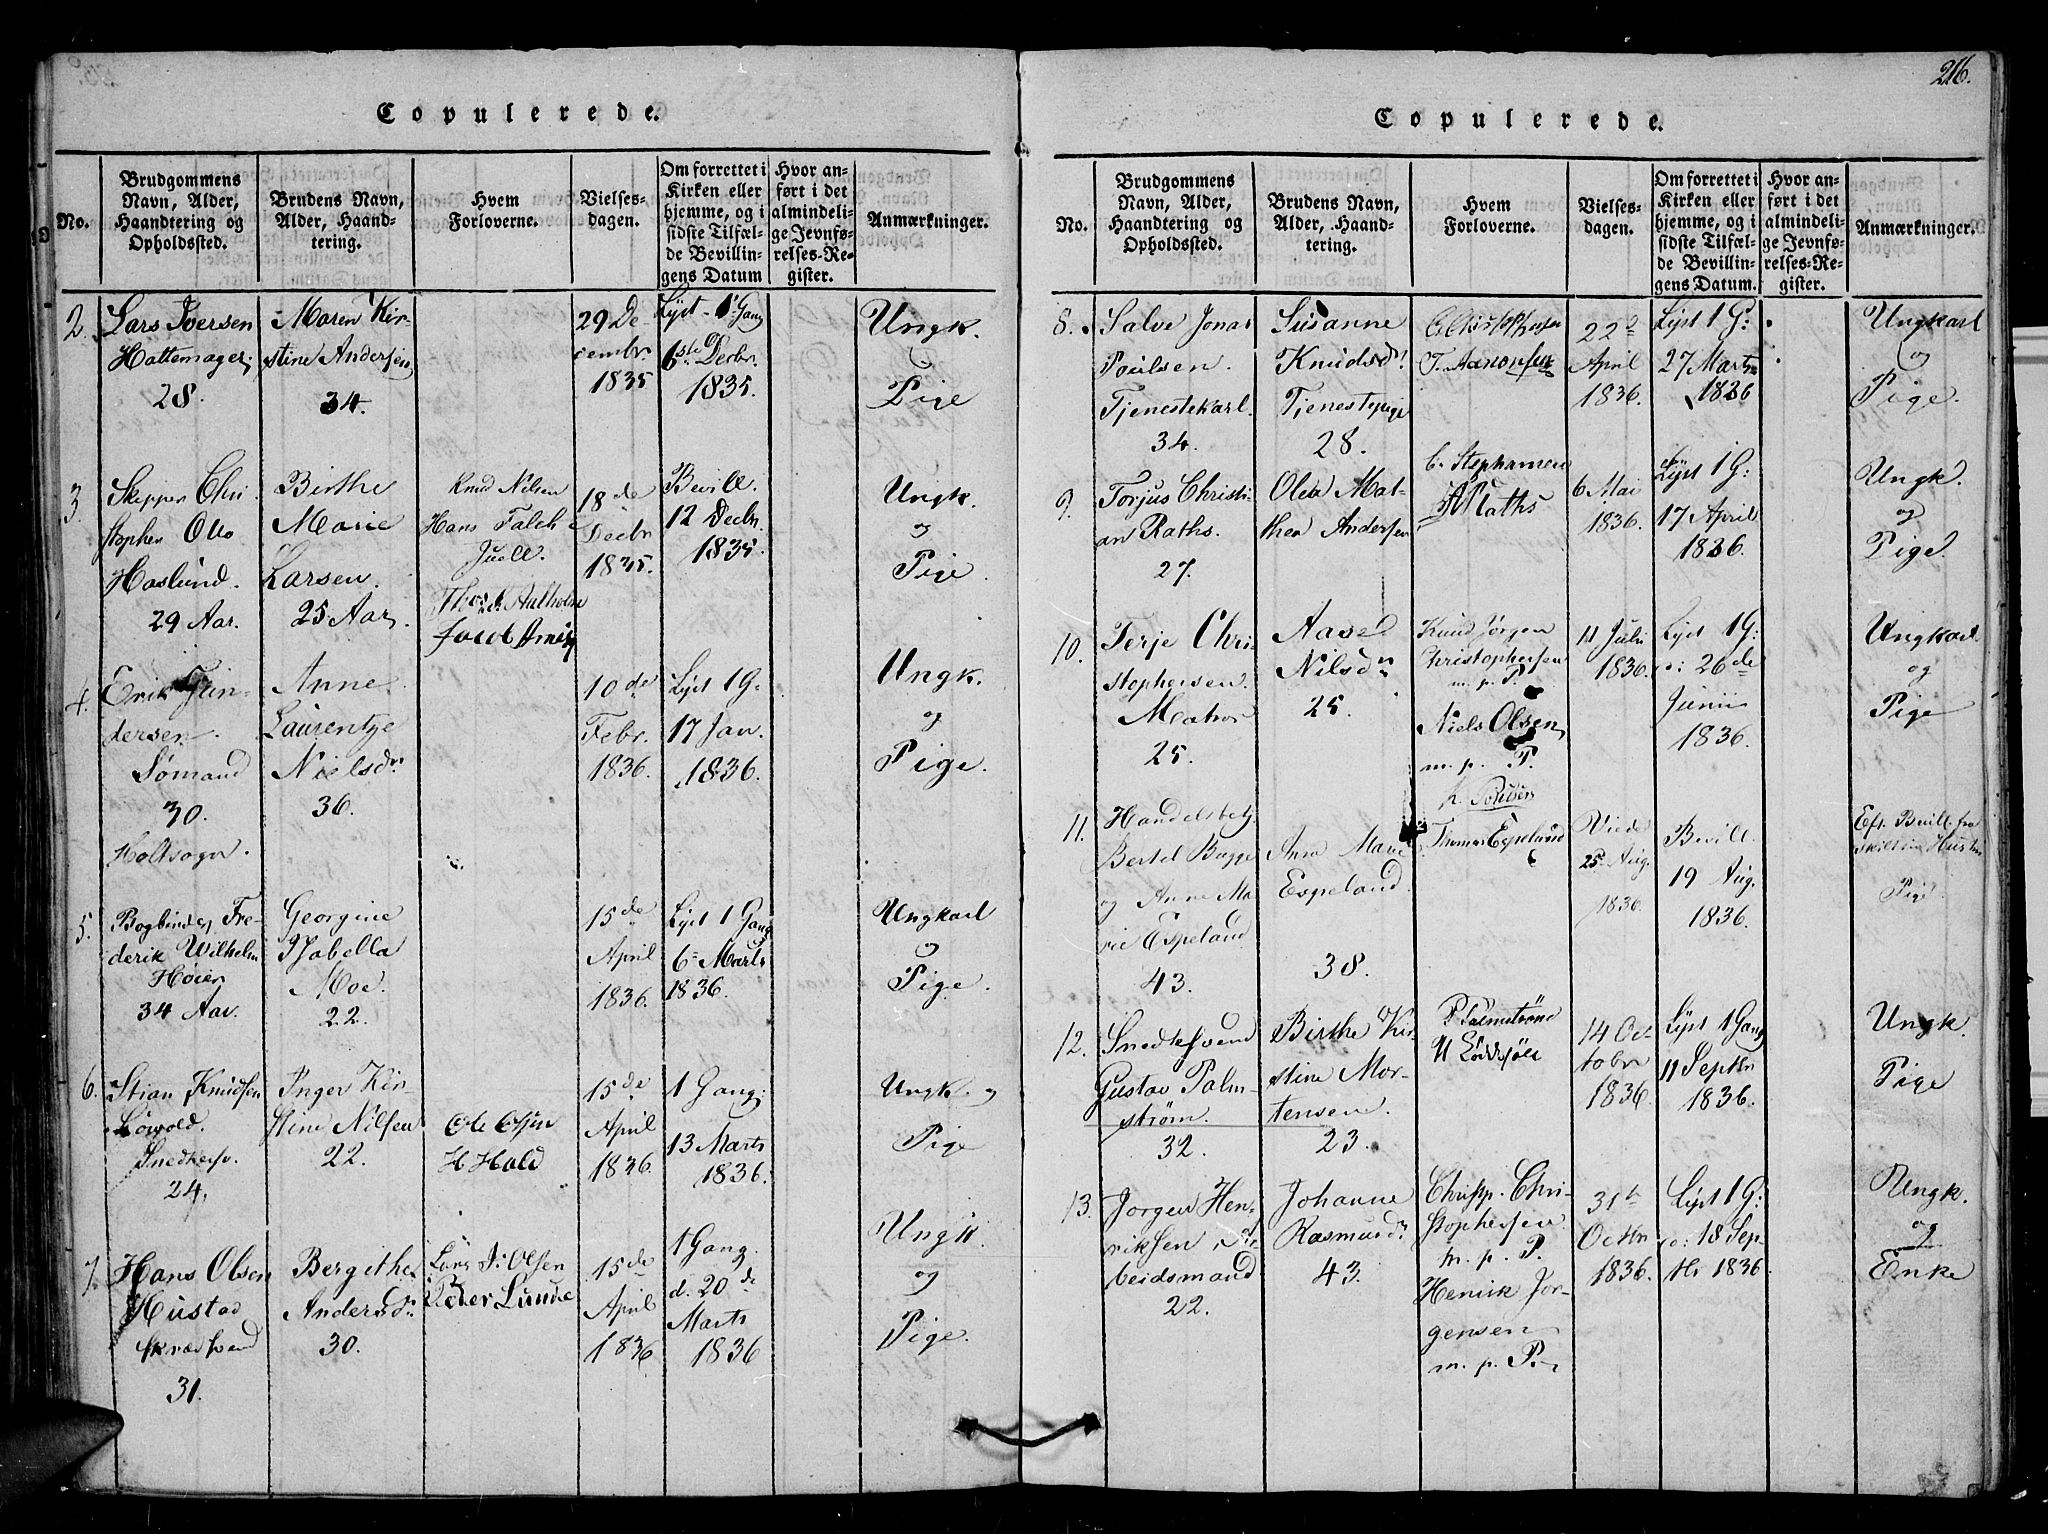 216.
Copulerede.
No.
Brudgommens Navn, Alder, Haandtering og Opholdssted.
Brudens Navn, Alder, Haandtering.
Hvem Forloverne.
Vielsesdagen.
Om forrettet i Kirken eller hjemme, og i sidste Tilfælde Bevillingens Datum
Hvor anført i det almindelige Jevnførelses-Register.
Anmærkninger.
2.
Lars Iversen
Hattemager
28.
Maren Kir-
stine Andersen
34.
29 De-
cembr
1835
Lyst 1 Gang
6te Decbr.
1835.
Ungk.
og
Pige
3.
Skipper Chri
stopher Otto
Haslund.
29 Aar.
Birthe
Marie
Larsen.
25 Aar.
Knud Nilsen
Hans Falch
Juell.
18de
Decbr
1835.
Bevill.
12 Decbr.
1835.
Ungk.
og
Pige.
4.
Erik Gun-
dersen.
Sømand
30.
Anne
Laurentze
Nielsdr
36.
10de
Febr.
1836.
Lyst 1 G.
17 Jan.
1836.
Ungk.
og
Pige.
5.
Bogbinder Fre-
derik Wilhelm
Høier
34 Aar.
Georgine
Isabella
Moe.
22.
15de
April
1836.
Lyst 1 Gang
6 Marts
1836.
Ungkarl
og
Pige.
6.
Stian Knudsen
Snedkersv.
24.
Inger Kir
stine Nilsen
22.
Ole Olsen
H Hald
15de
April
1836.
1 Gang
13 Marts
1836.
Ungk. og
Pige
7.
Hans Olsen
Hustad
skrædsvend
31.
Bergithe
Andersdr
30.
Lars J. Olsen
Peder Lunde
15de
April
1836
1 Gang.
d. 20de
Marts
1836
Ungk.
og
Pige.
Copulerede.
No.
Brudgommens Navn, Alder, Haandtering og Opholdssted.
Brudens Navn, Alder, Haandtering.
Hvem Forloverne.
Vielsesdagen.
Om forrettet i Kirken eller hjemme, og i sidste Tilfælde Bevillingens Datum.
Hvor anført i det almindelige Jevnførelses-Register.
Anmærkninger.
8.
Salve Jonas
Poulsen.
Tjenestekarl.
34.
Susanne
Knudsdr
Tjenestepige
28.
T. Aanonsen
22d
April
1836.
Lyst 1 G:
27 Marts
1836
Ungkarl
og
Pige.
9.
Torjus Christi-
an Raths.
27.
Olea Mat-
thea Andersen
C. Stephansen
6 Mai
1836.
Lyst 1 G:
17 April
1836.
Ungk.
og
Pige.
10.
Terje Chri-
stophersen.
25.
Aase
Nilsdr
25.
Knud Jørgen
Christophersen
m. p. P.
Niels Olsen
m. p. P.
11 Juli
1836.
Lyst 1 G:
26de
Junii
1836.
Ungkarl
og
Pige
11.
Bertel Bugge
og Anne Ma
rie Espeland
43.
Ana Marie
Espeland.
38.
Thomas Espeland
Viede
25 Aug.
1836.
Bevill.
19 Aug.
1836.
Eft. Bevill. fra
Pige
12.
Snedkersvend
Gustav Palm-
strøm.
32.
Birthe Kir
stine Mor-
tensen.
23.
P Palmstrøm
14 Oc-
tobr
1836.
Lyst 1 Gang
11 Septbr
1836.
Ungk.
Pige
13.
Jørgen Hen-
riksen, Ar-
beidsmand
22.
Johanne
Rasmusdr
43.
Christp. Chri-
stophersen
m. p. P.
Henrik Jør-
gensen
m. p. P.
31te
Octbr
1836.
Lyst 1 G:
18 Sep-
tbr 1836
Ungk.
og
Enke